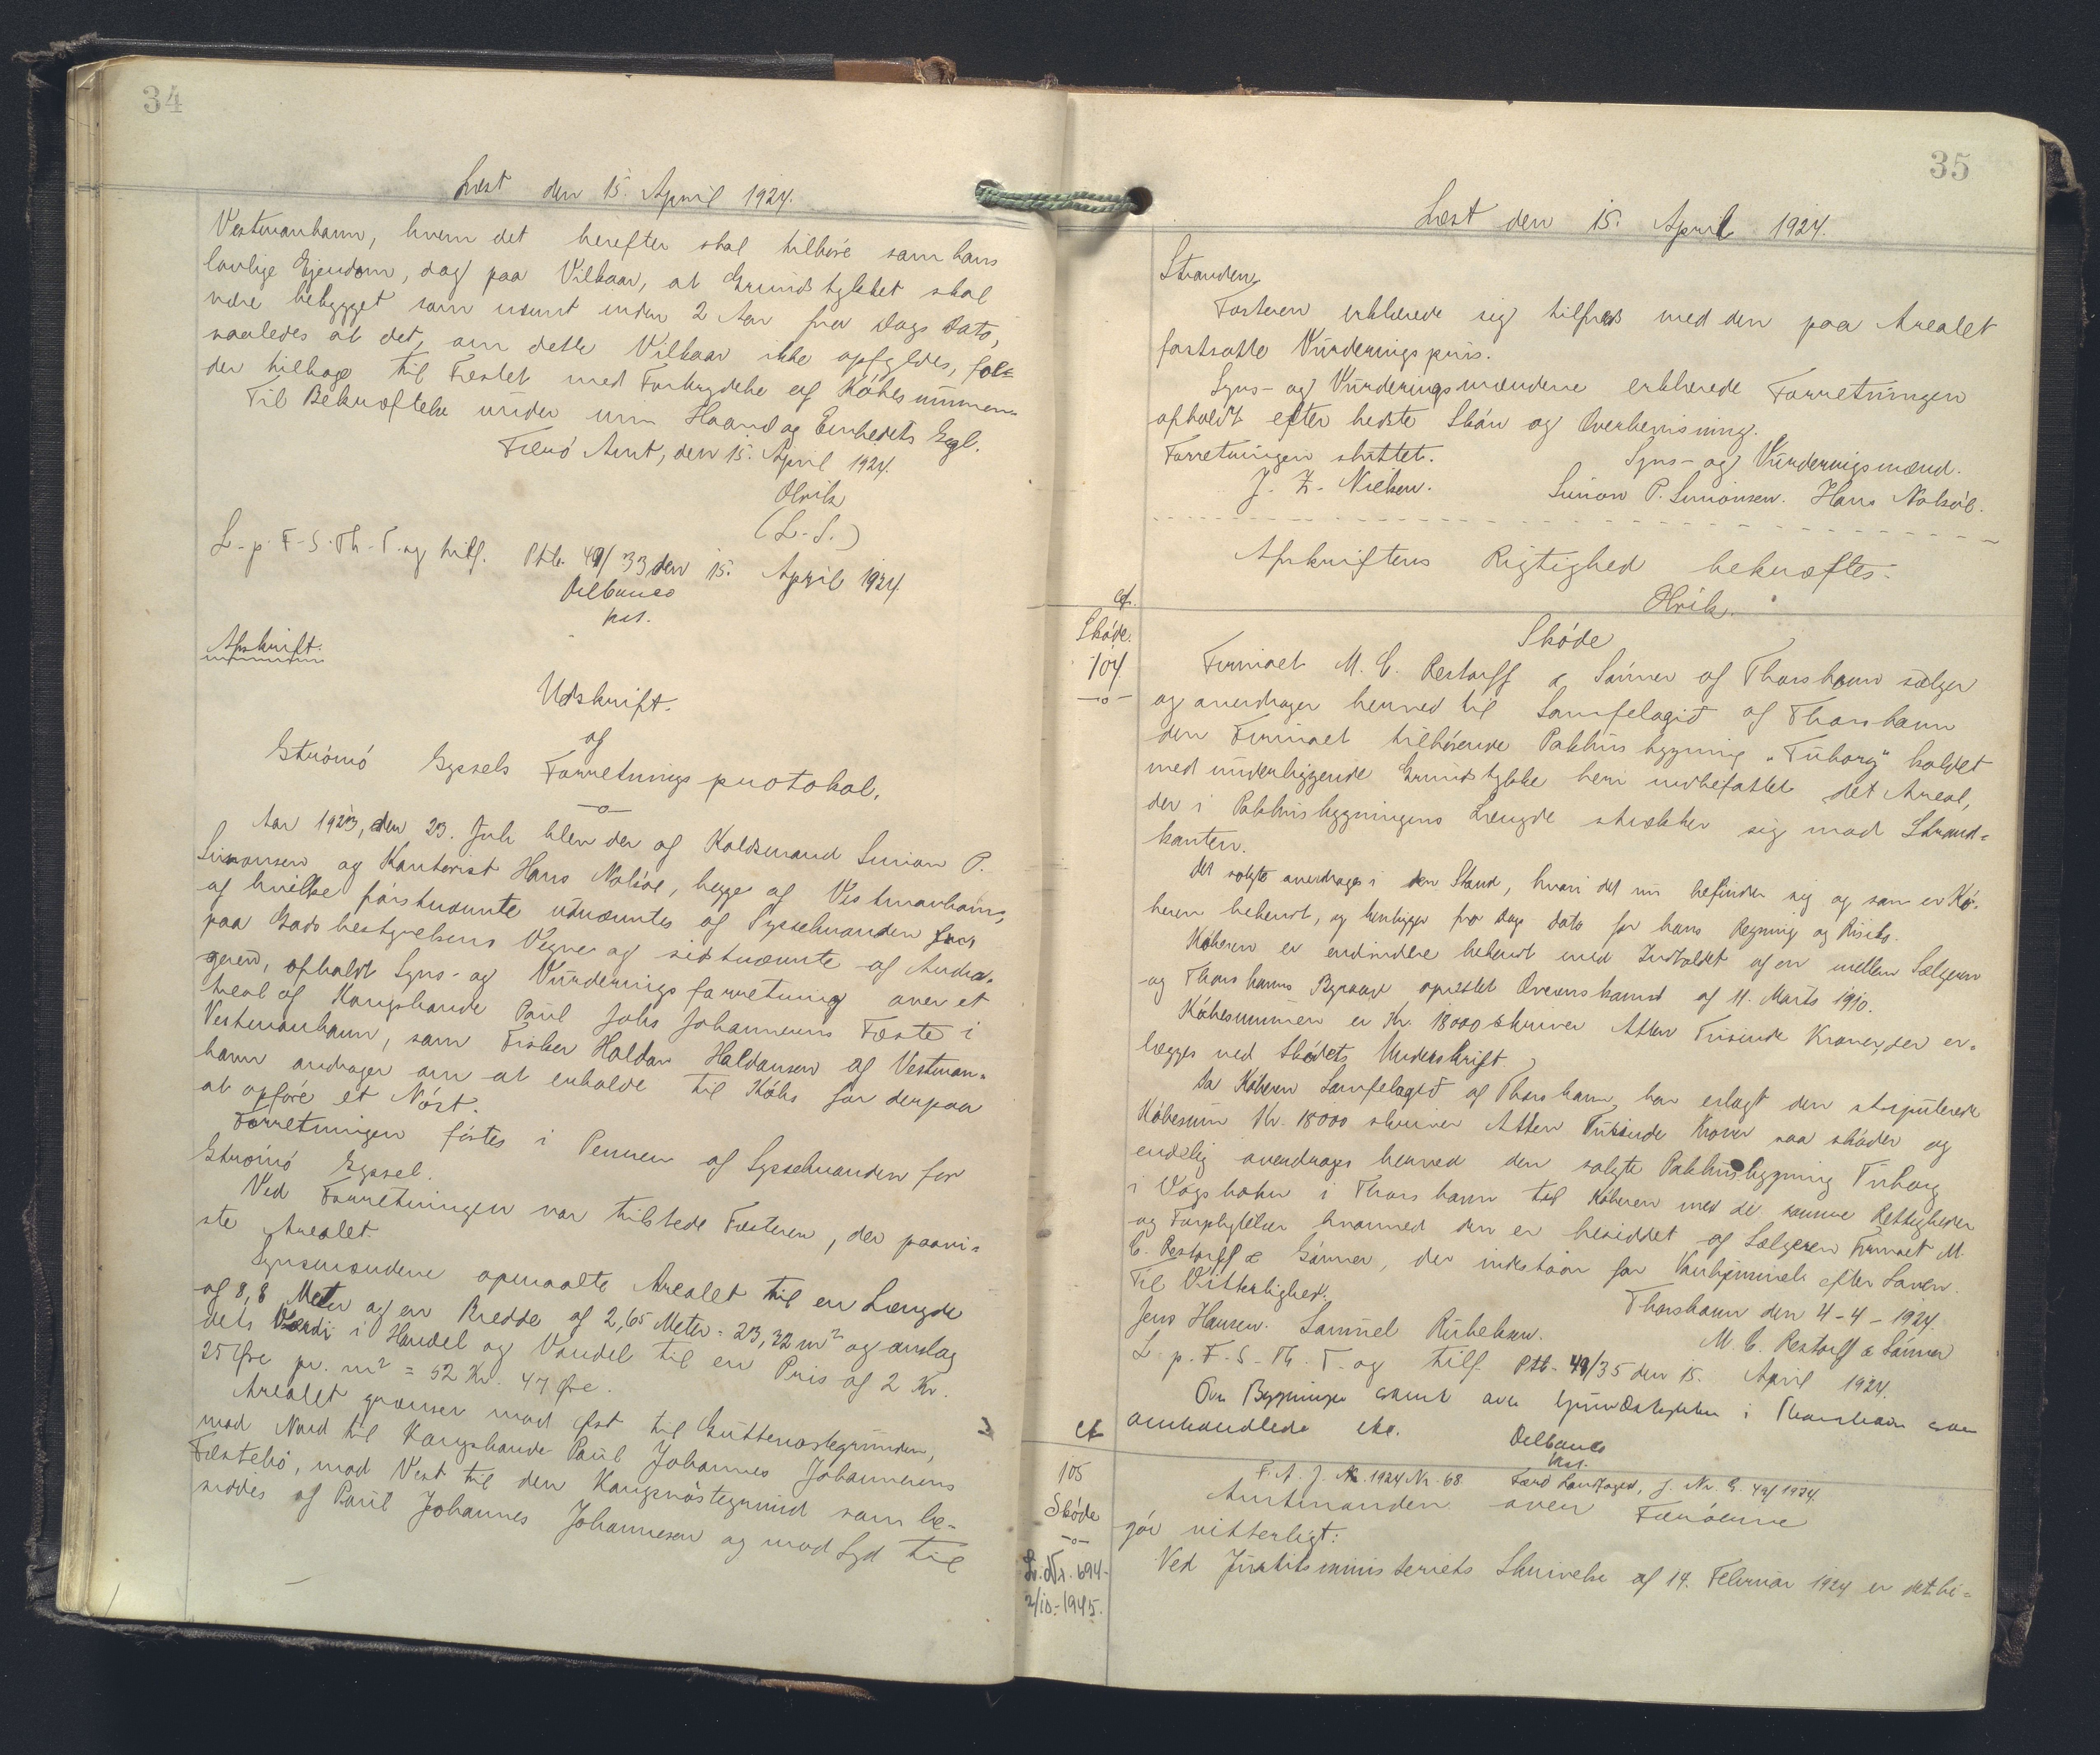 34
Læst den 15. April 1924.
Vestmanhavn, hvem det herefter skal tilhøre som hans
lovlige Ejendom, dog paa Vilkaar, at Grundstykket skal
være bebygget som nævnt inden 2 Aar fra Dags Dato,
saaledes at det, om dette Vilkaar ikke opfyldes, fal=
der tilbage til Fæstet med Fortrydelse af Købesummen.
Til Bekræftelse under min Haand og Embedets Segl.
Færø Amt, den 15. April 1924.
Olrik
(L.S.)
L. p. F-S-Th-T. og tilf. Ptb. 49/33 den 15. April 1924.
Delbanco
kst.
Afskrift.
Udskrift.
af
Strømø Syssels Forretningsprotokol.
-o-
Aar 1923, den 23. Juli blev der af Kaldsmand Simon P.
Simonsen og Kontorist Hans Nolsøe, begge af Vestmanhavn,
af hvilke førstnævnte udnævntes af Sysselmanden
paa Jordbestyrelsens Vegne og sidstnævnte af Andra-
geren, afholdt Syns- og Vurderingsforretning over et
Areal af Kongsbonde Poul Johs Johannesens Fæste i
Vestmanhavn, som Fisker Haldan Haldansen af Vestman-
havn andrager om at erholde til Købs for derpaa
at opføre et Nøst.
Forretningen førtes i Pennen af Sysselmanden for
Strømø Syssel.
Ved Forretningen var tilstede Fæsteren, der paavi=
ste Arealet.
Synsmændene opmaalte Arealet til en Længde
af 8,8 Meter og en Bredde af 2,65 Meter = 23,32 m² og anslog
dets Værdi i Handel og Vandel til en Pris af 2 Kr.
25 Øre pr. m² = 52 Kr. 47 Øre.
Arealet grænser mod Øst til
mod Nord til Kongsbonde Poul Johannes Johannesens
Fæstebø, mod Vest til den Kongsnøstegrund som be-
siddes af Poul Johannes Johannesen og mod Syd til
35
Læst den 15. April 1924.
Stranden.
Fæsteren erklærede sig tilfreds med den paa Arealet
fastsatte Vurderingspris.
Syns- og Vurderingsmændene erklærede Forretningen
afholdt efter bedste Skøn og Overbevisning.
Forretningen sluttet.
Syns- og Vurderingsmænd.
J. Z. Nielsen. Simon P. Simonsen. Hans Nolsøe.
Afskriftens Rigtighed bekræftes.
Olrik.
cf.
Skøde.
104
-o-
Skøde
Firmaet M. C. Restorff & Sønner af Thorshavn sælger
og overdrager herved til Sanfelagið af Thorshavn
den Firmaet tilhørende Pakhusbygning "Tuborg" kaldet
med underliggende Grundstykke heri indbefattet det Areal,
der i Pakhusbygningens Længde strækker sig mod Strand=
kanten.
Det solgte overdrages i den Stand, hvori det nu befinder sig og som er Kø-
beren bekendt, og henligger fra Dags Dato for hans Regning og Risiko.
Køberen er endvidere bekendt med Indholdet af en mellem Sælgeren
og Thorshavns Byraad oprettet Overenskomst af 11. Marts 1910.
Købesummen er Kr. 18000 skriver Atten Tusinde Kroner, der er=
lægges ved Skødets Underskrift.
Da Køberen Sanfelagið af Thorshavn har erlagt den stipulerede
Købesum Kr. 18000 skriver Atten Tusinde Kroner saa skøder og
endelig overdrages herved den solgte Pakhusbygning Tuborg
i Vogsbotn i Thorshavn til Køberen med de samme Rettigheder
og Forpligtelser hvormed den er besiddet af Sælgeren Firmaet M.
C. Restorff & Sønner, der indestaar for Vanhjemmel efter Loven.
Til Vitterlighed:
Thorshavn den 4-4-1924.
Jens Hansen. Samuel Rubeksen.
M. C. Restorff & Sønner
L. p. F-S-Th-T- og tilf. Ptb. 49/35 den 15. April 1924.
Bygningen samt Grundstykke i Thorshavn som
cf
omhandlede
Delbanco
kst.
105
Skøde
-o-
Lb. Nr. 694-
2/10-1945.
F. A. J. Nr. 1924 Nr. 68. Færø Landfoged, J. Nr. G. 49/1924.
Amtmanden over Færøerne
gør vitterligt:
Ved Justitsministeriets Skrivelse af 14. Februar 1924 er det be=